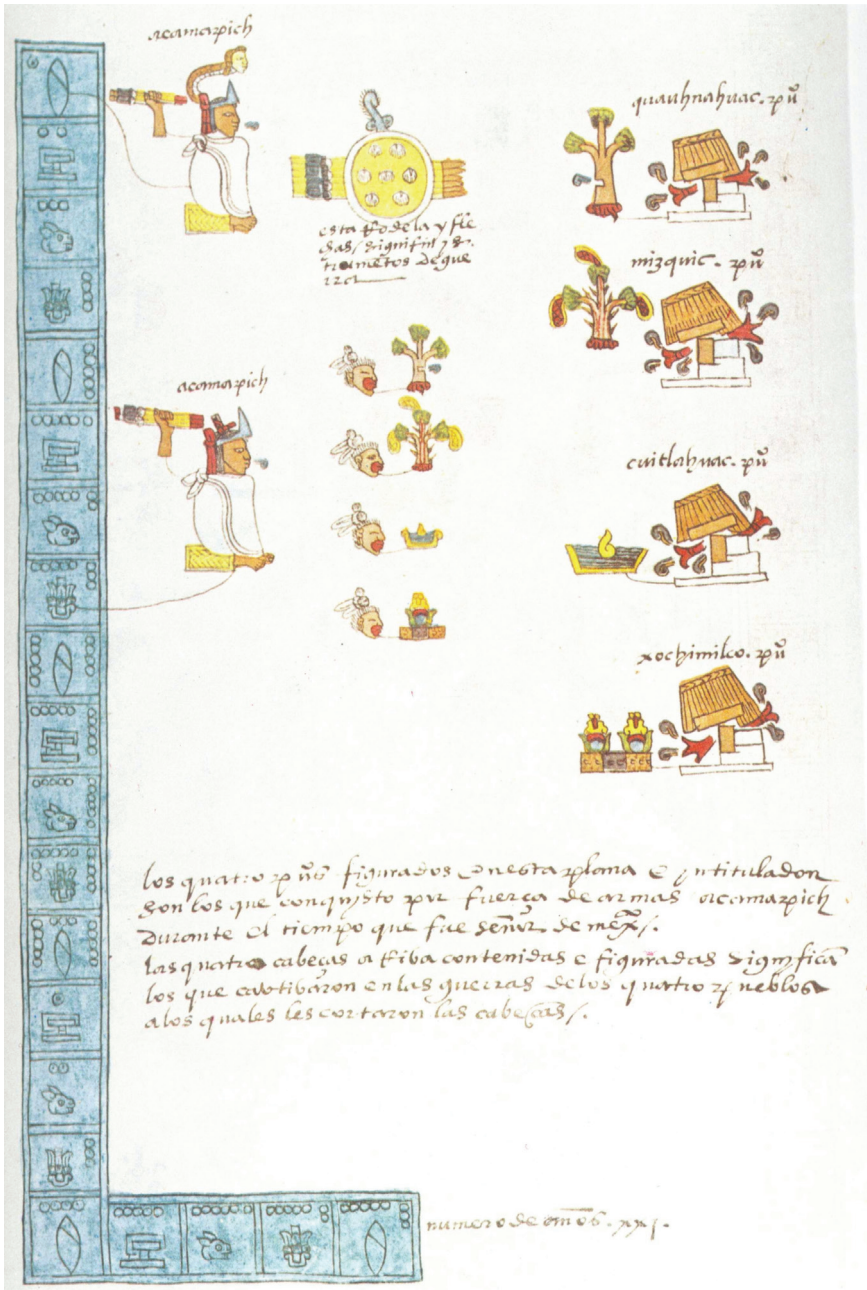 acamapich
quauhnahuac. pu
esta Rodela y fle
chas / signifi
trumetos de gue
rra
mizquic. pu
acamapich
cuitlahuac. pu
xochimilco. pu
los quatro pus figurados enesta plana e yntitulados
son los que conquysto por fuerça de armas acamapich
durante el tiempo que fue señor de mexco /.
las quatro cabeças a Riba contenidas e figuradas signyfican
los que cavtibaron en las guerras de los quatro pueblos
a los quales les cortaron las cabeças /.
numero de años. xxj.